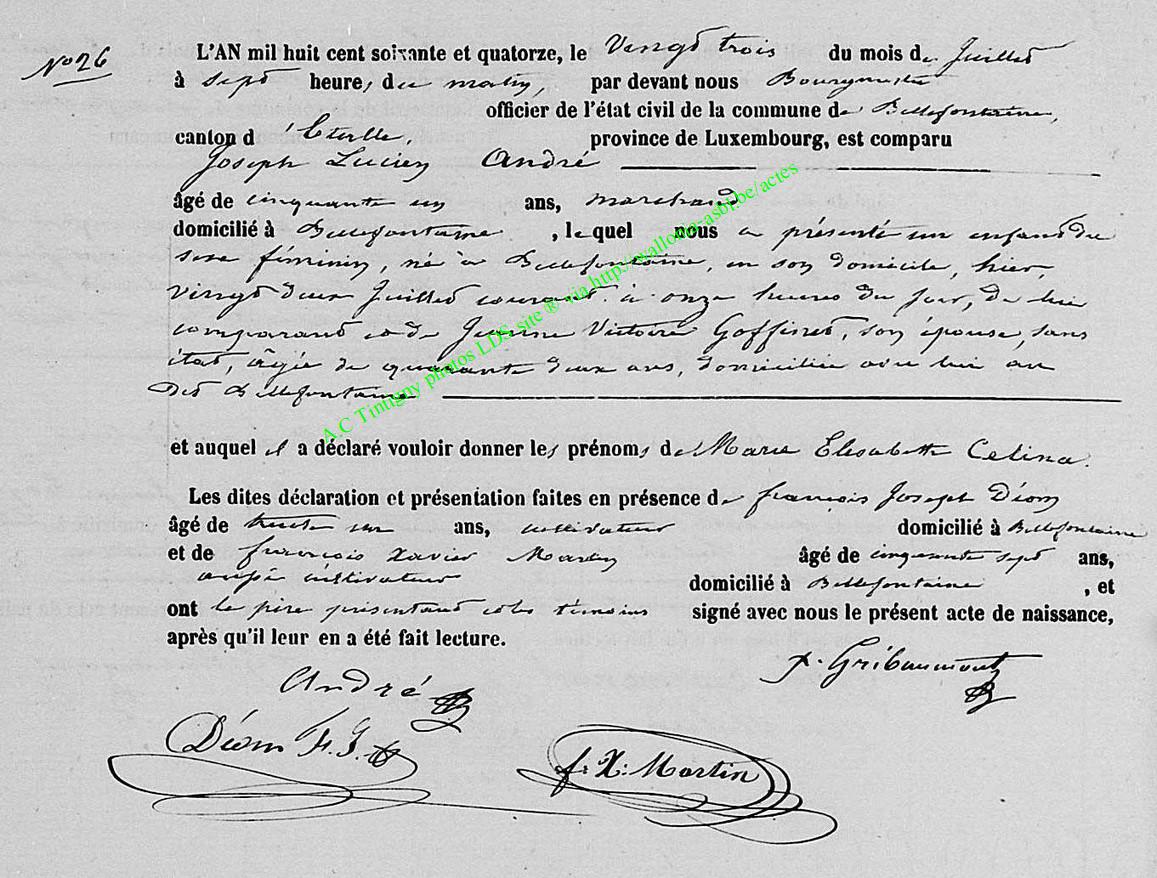 No 26
L'AN mil huit cent soixante et quatorze, le Vingt trois du mois de Juillet
à sept heures du matin, par devant nous Bourgmestre
officier de l'état civil de la commune de Bellefontaine,
canton d'Etalle, province de Luxembourg, est comparu
Joseph Lucien André
âgé de cinquante un ans, marchand
domicilié à Bellefontaine, lequel nous a présenté un enfant du
sexe féminin, né à Bellefontaine, en son domicile, hier,
vingt deux Juillet courant à onze heures du jour, de lui
comparant et de Jeanne Victoire Goffinet, son épouse, sans
état, âgée de quarante deux ans, domiciliée avec lui au
dit Bellefontaine
et auquel il a déclaré vouloir donner les prénoms de Marie Elisabeth Celina.
Les dites déclaration et présentation faites en présence de françois Joseph Déom
âgé de trente un ans, cultivateur domicilié à Bellefontaine
et de françois Xavier Martin âgé de cinquante sept ans,
aussi cultivateur domicilié à Bellefontaine, et
ont le père présentant et les témoins signé avec nous le présent acte de naissance,
après qu'il leur en a été fait lecture.
André
Gribaumont
Déom F. J.
f. X. Martin
A.C Tintigny photos LDS site ® via http://wallonia-asbl.be/actes